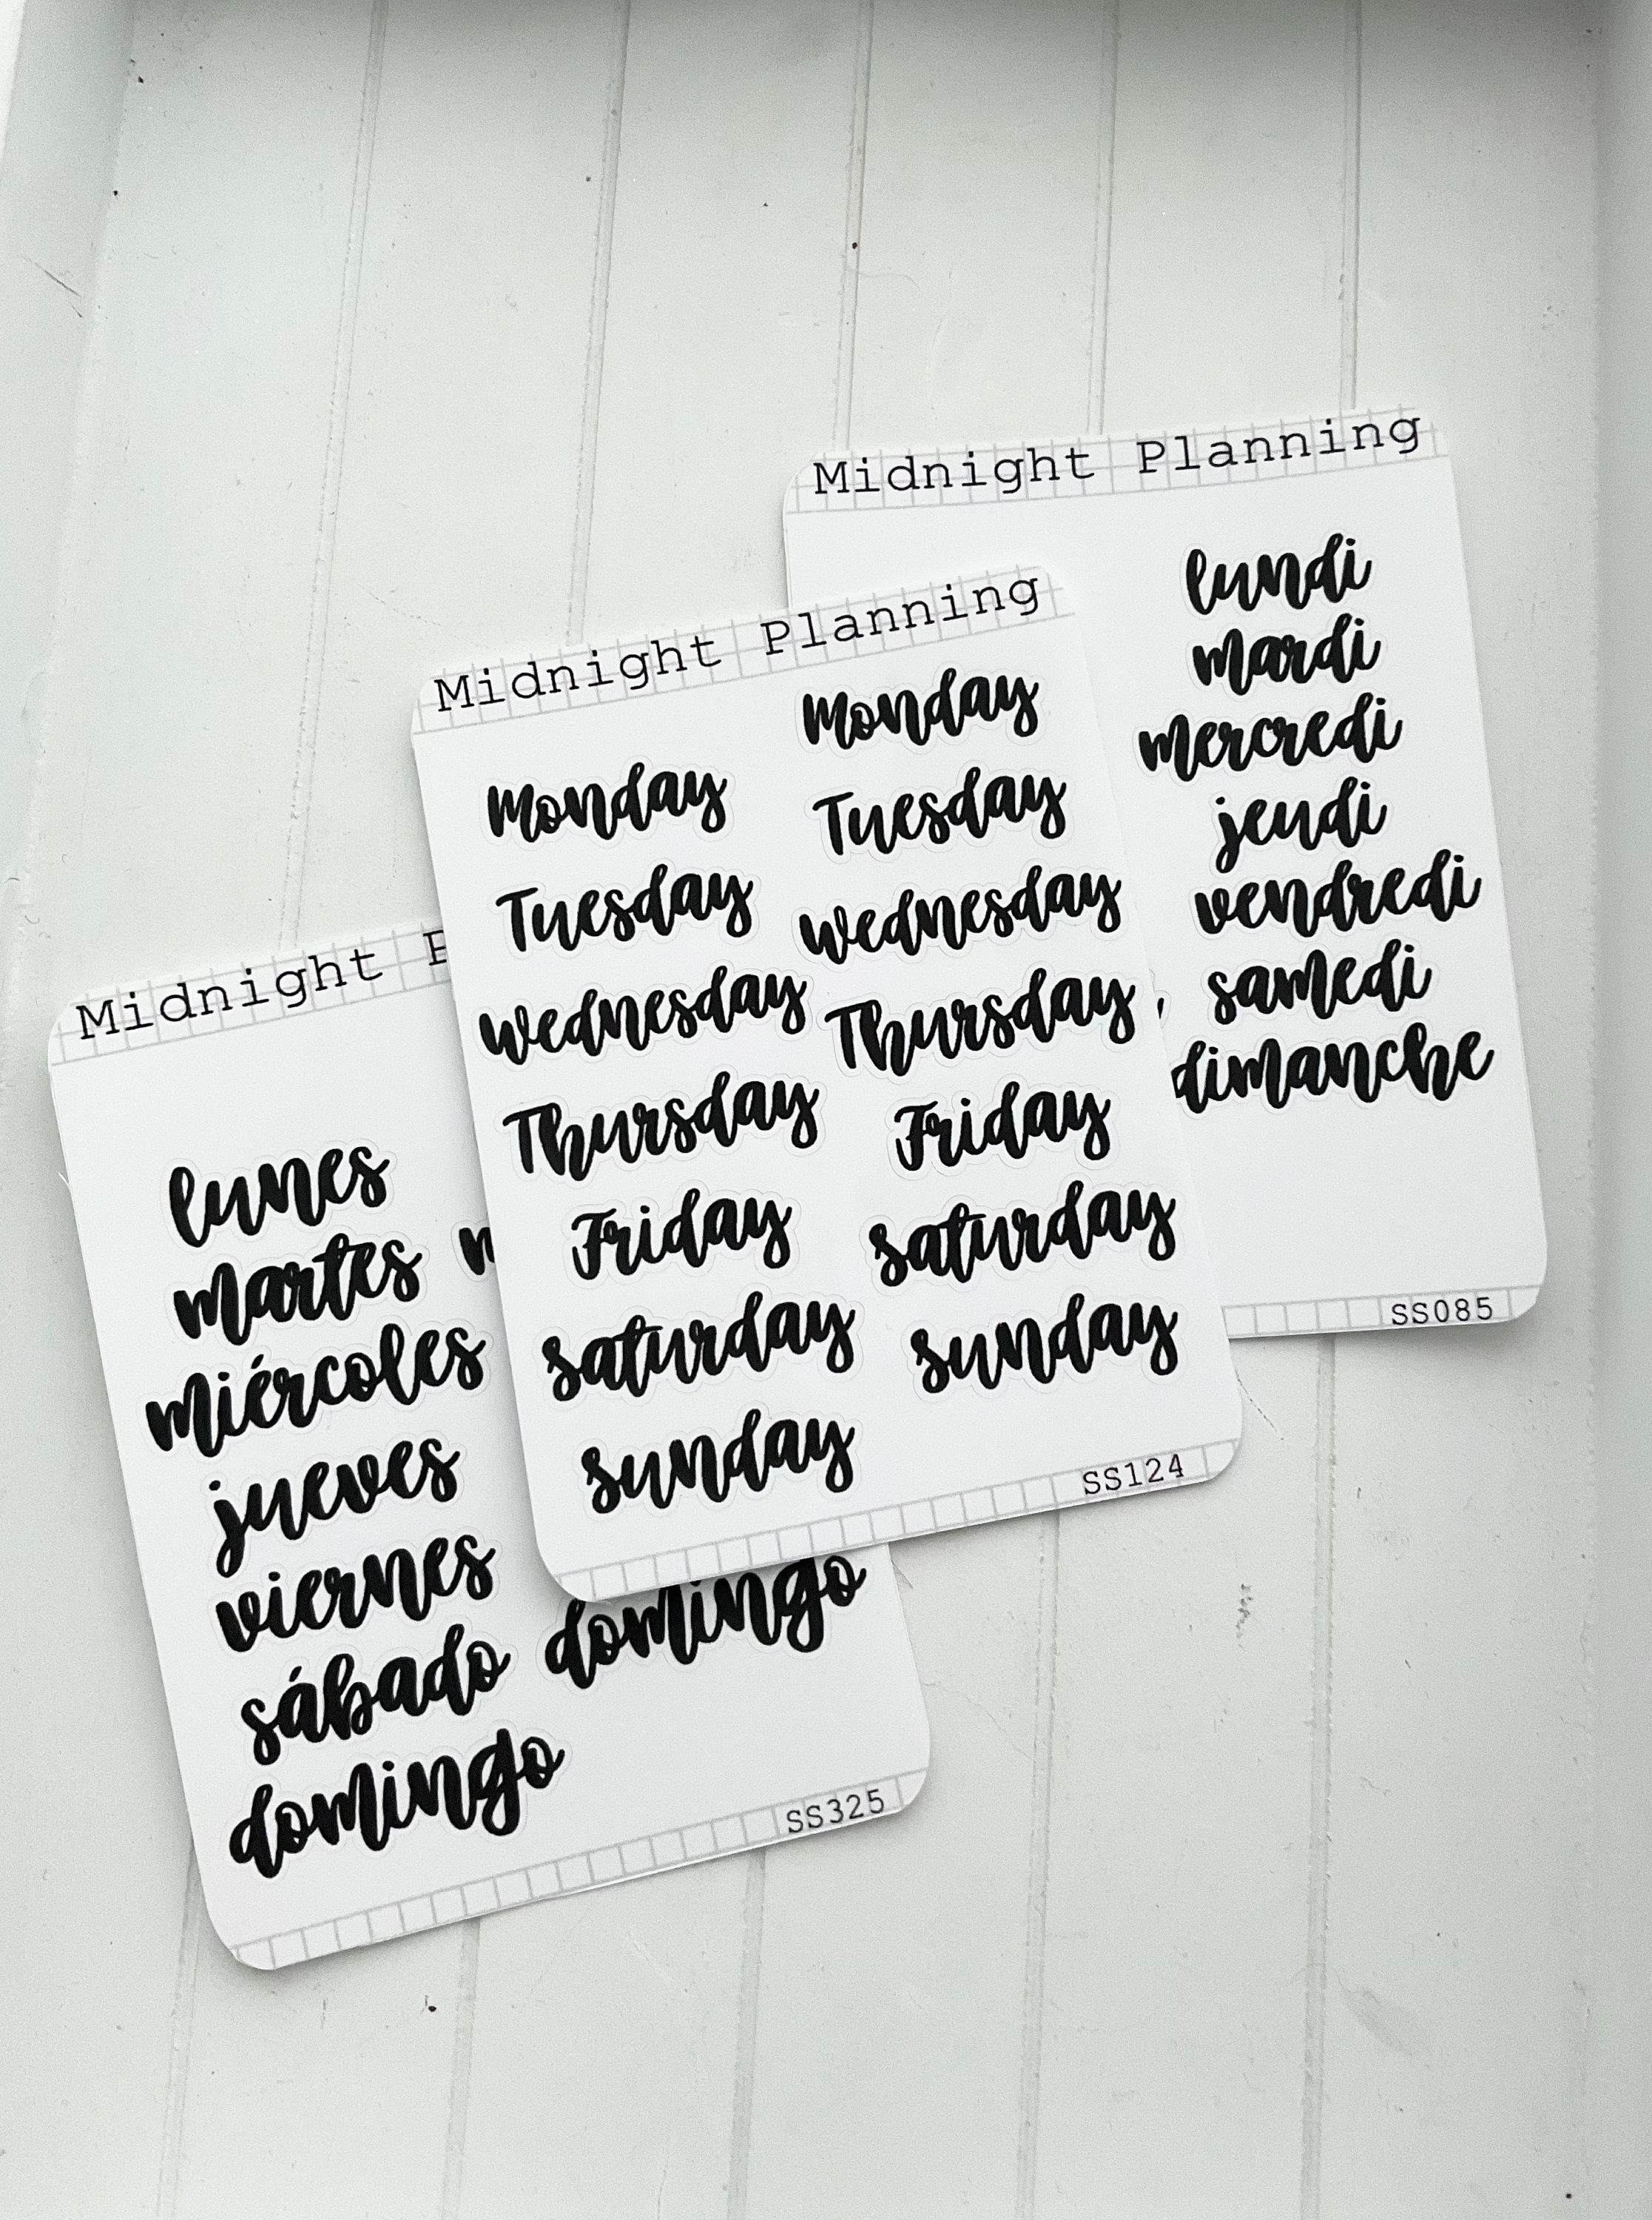 Midnight Planning
lundi
mardi
mercredi
jeudi
vendredi
samedi
dimanche
SS085
Midnight Planning
Monday
Tuesday
Wednesday
Thursday
Friday
Saturday
Sunday
Monday
Tuesday
Wednesday
Thursday
Friday
Saturday
Sunday
SS124
Midnight
lunes
martes
miércoles
jueves
viernes
sábado
domingo
domingo
SS325